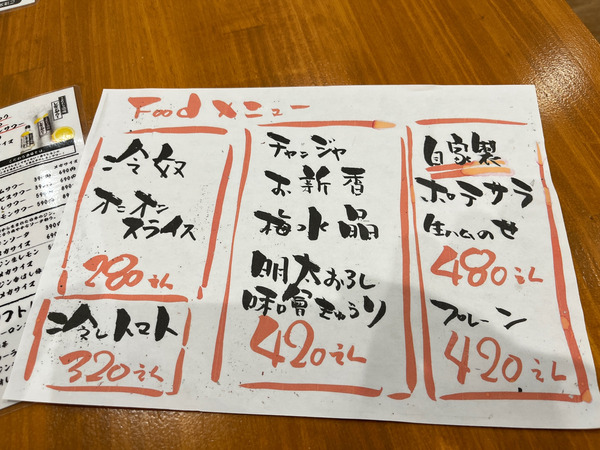 Food メニュー
冷奴
オニオン
スライス
280えん
冷しトマト
320えん
チャンジャ
お新香
梅水晶
明太おろし
味噌きゅうり
420えん
自家製
ポテサラ
生ハムのせ
480えん
プレーン
420えん
メガサイズ
590円
690円